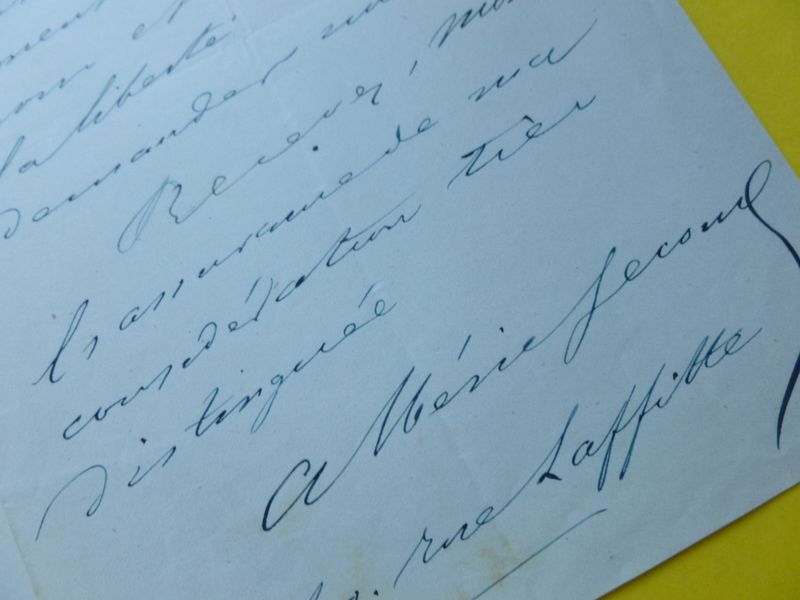 la liberté
demander
Recevez,
l'assurance de ma
considération très
distinguée
Albéric Second
rue Laffitte